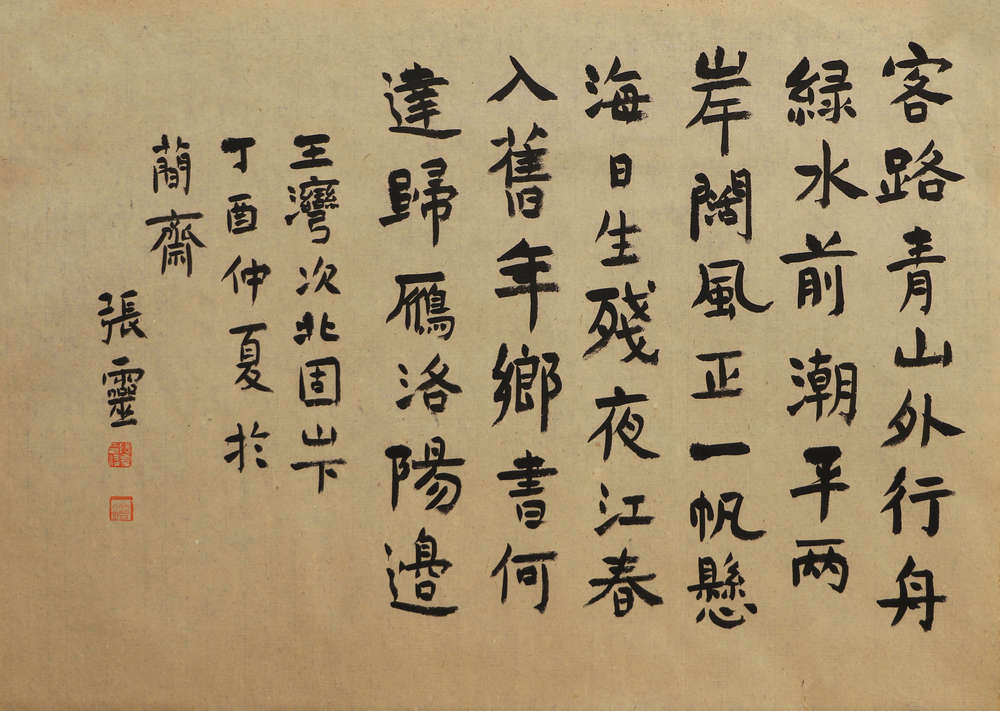 客路青山外行舟
緑水前潮平两
岸闊風正一帆懸
海日生残夜江春
入舊年鄉書何
達歸鴈洛陽邊
王灣次北固山下
丁酉仲夏於
蕳齋
張靈